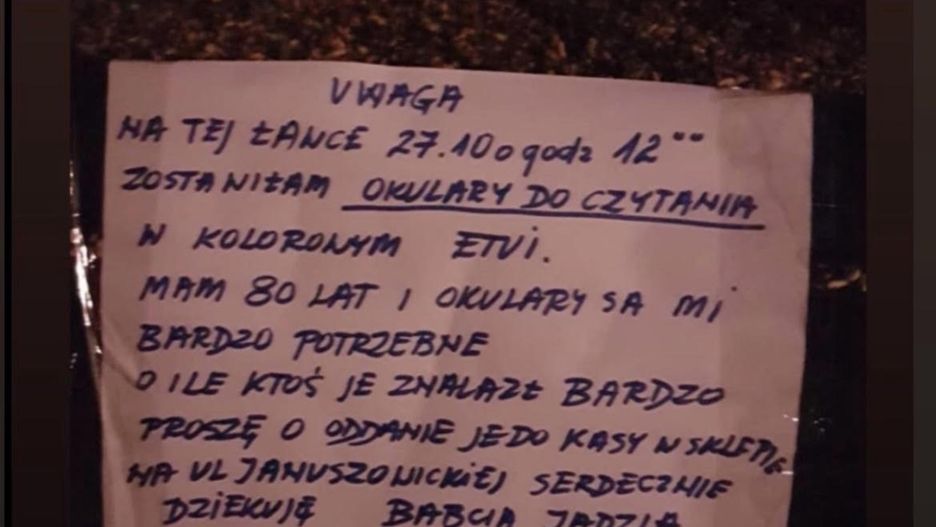 UWAGA
NA TEJ ŁAWCE 27.10 o godz 12°°
ZOSTAWIŁAM OKULARY DO CZYTANIA
W KOLOROWYM ETUI.
MAM 80 LAT I OKULARY SA MI
BARDZO POTRZEBNE
O ILE KTOŚ JE ZNALAZŁ BARDZO
PROSZĘ O ODDANIE JE DO KASY W SKLEPIE
NA UL JANUSZOWICKIEJ SERDECZNIE
DZIEKUJĘ BABCIA JADZIA